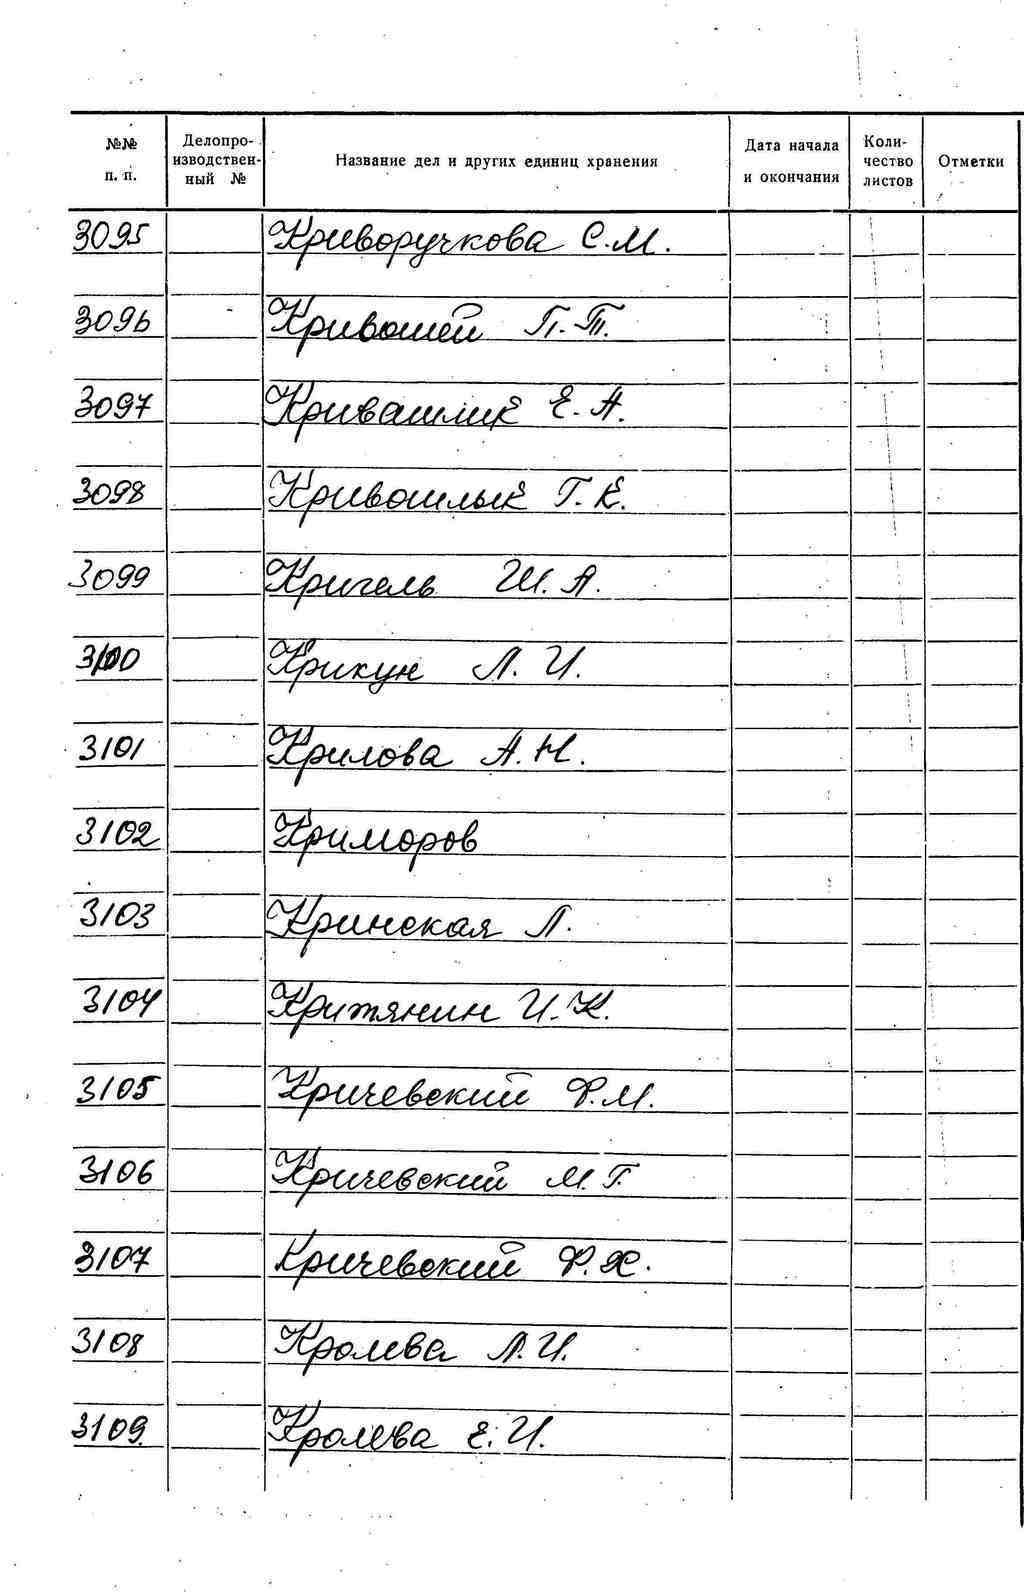 №№ п. п. Делопро-изводствен-ный № Название дел и других единиц хранения Дата начала и окончания Коли-чество листов Отметки
3095 Криворучкова С.М.
3096 Кривошей П.Т.
3097 Кривашлик Е.А.
3098 Кривошлык Г.К.
3099 Кригель Ш.А.
3100 Крикун Л.И.
3101 Крилова А.Н.
3102 Криморов
3103 Кринская Л.
3104 Критянин И.К.
3105 Кричевский Ф.М.
3106 Кричевский М.Г.
3107 Кричевский Ф.Х.
3108 Кролева Л.И.
3109 Кролева Е.И.